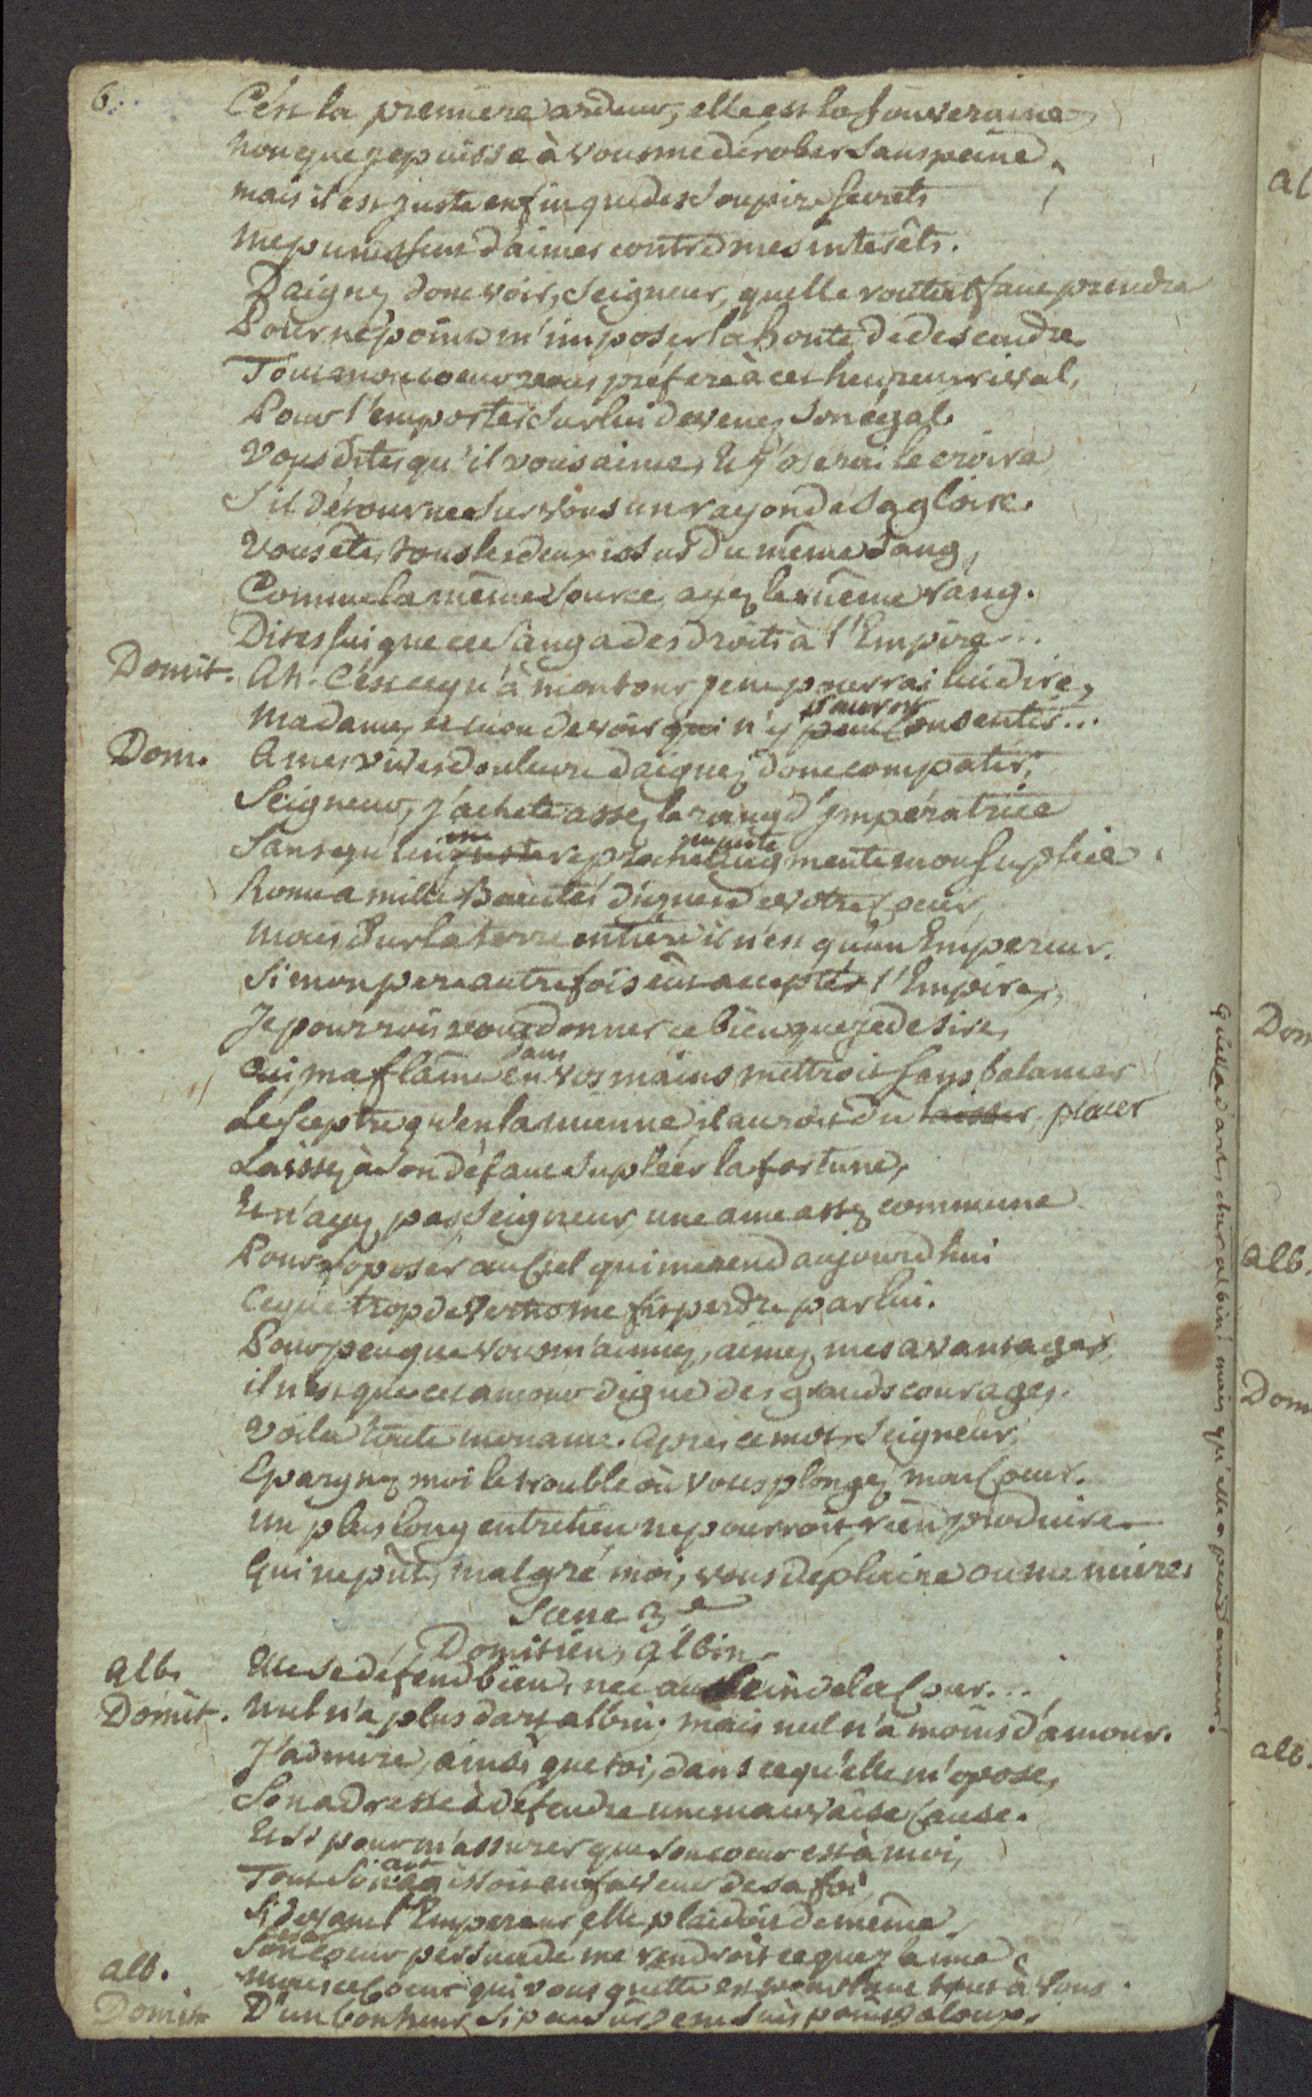 6.
C'est la premiere ardeur, elle est la souveraine
Non que je puisse à vous me dérober sans peine,
mais il est juste enfin que des soupirs secrets
me punissent d'aimer contre mes interêts.
Daignez donc voir, Seigneur, quelle route il faut prendre
Pour ne point m'imposer la honte de descendre.
Tout mon coeur vous préfere à cet heureux rival,
Pour l'emporter sur lui devenez son égal.
Vous dites qu'il vous aime, Et j'oserai le croire
S'il détourne sur vous un rayon de sa gloire.
Vous êtes tous les deux issus du même sang,
Comme la même source ayez le même rang.
Dites lui que ce sang a des droits à l'Empire...
Domit. Ah. C'est ce qu'à mon tour je ne pourrai lui dire,
Madame, et mon devoir qui n'y peut sauroit Consentir...
Dom. A mes vives douleurs daignez donc compatir,
Seigneur, j'achete assez le rang d'Impératrice
Sans qu'un juste reproche injuste augmente mon suplice.
Rome a mille Beautés dignes de votre Coeur,
Mais sur la terre entiere il n'est qu'un Empereur.
Si mon pere autrefois eut accepté l'Empire,
Je pourrois vous donner ce bien que je desire,
Oui ma flâme en dans vos mains mettroit sans balancer
Le Sceptre qu'en la mienne il auroit du laisser placer
Laissez à son défaut supléer la fortune,
Et n'ayez pas Seigneur, une ame assez commune
Pour s'oposer au Ciel qui me rend aujourdhui
Ce que trop de vertu me fit perdre par lui.
Pour peu que vous m'aimiez, aimez mes avantages,
il n'est que cet amour digne des grands courages.
Voila toute mon ame. Après ce mot, Seigneur,
Epargnez moi le trouble où vous plongez mon Coeur.
Un plus long entretien ne pourroit rien produire
Qui ne pût, malgré moi, vous déplaire ou me nuire.
Scene 3e
Domitien, Albin
Alb. Elle se défend bien, née au sein de la Cour...
Domit. Nul n'a plus d'art albin. mais nul n'a moins d'amour.
J'admire, ainsi que toi, dans ce qu'elle m'opose,
Son adresse à défendre une mauvaise Cause.
Et si pour m'assurer que son coeur est à moi,
Tout son art agissoit en faveur de sa foi
Si devant l'Empereur elle plaidoit de même,
Son coeur persuadé me rendroit ce que j'aime
alb. Mais ce Coeur qui vous quitte est tout à vous.
Domit. D'un bonheur si peu sûr je ne suis point jaloux.
quelle a d'art, cher albin! mais qu'elle a peu d'amour!
al
Dom
Alb.
Dom
alb.